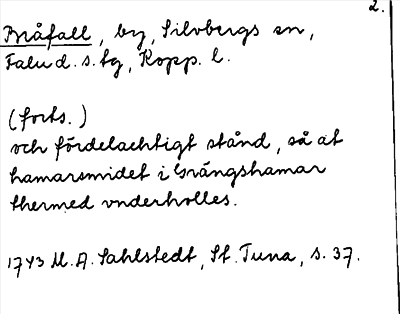 2.
Bråfall, by, Silvbergs sn,
Falu d. s. tg, Kopp. l.
(forts.)
och fördelachtigt stånd, så at
hamarsmidet i Grängshamar
thermed vnderholles.
1743 M. A. Sahlstedt, St. Tuna, s. 37.